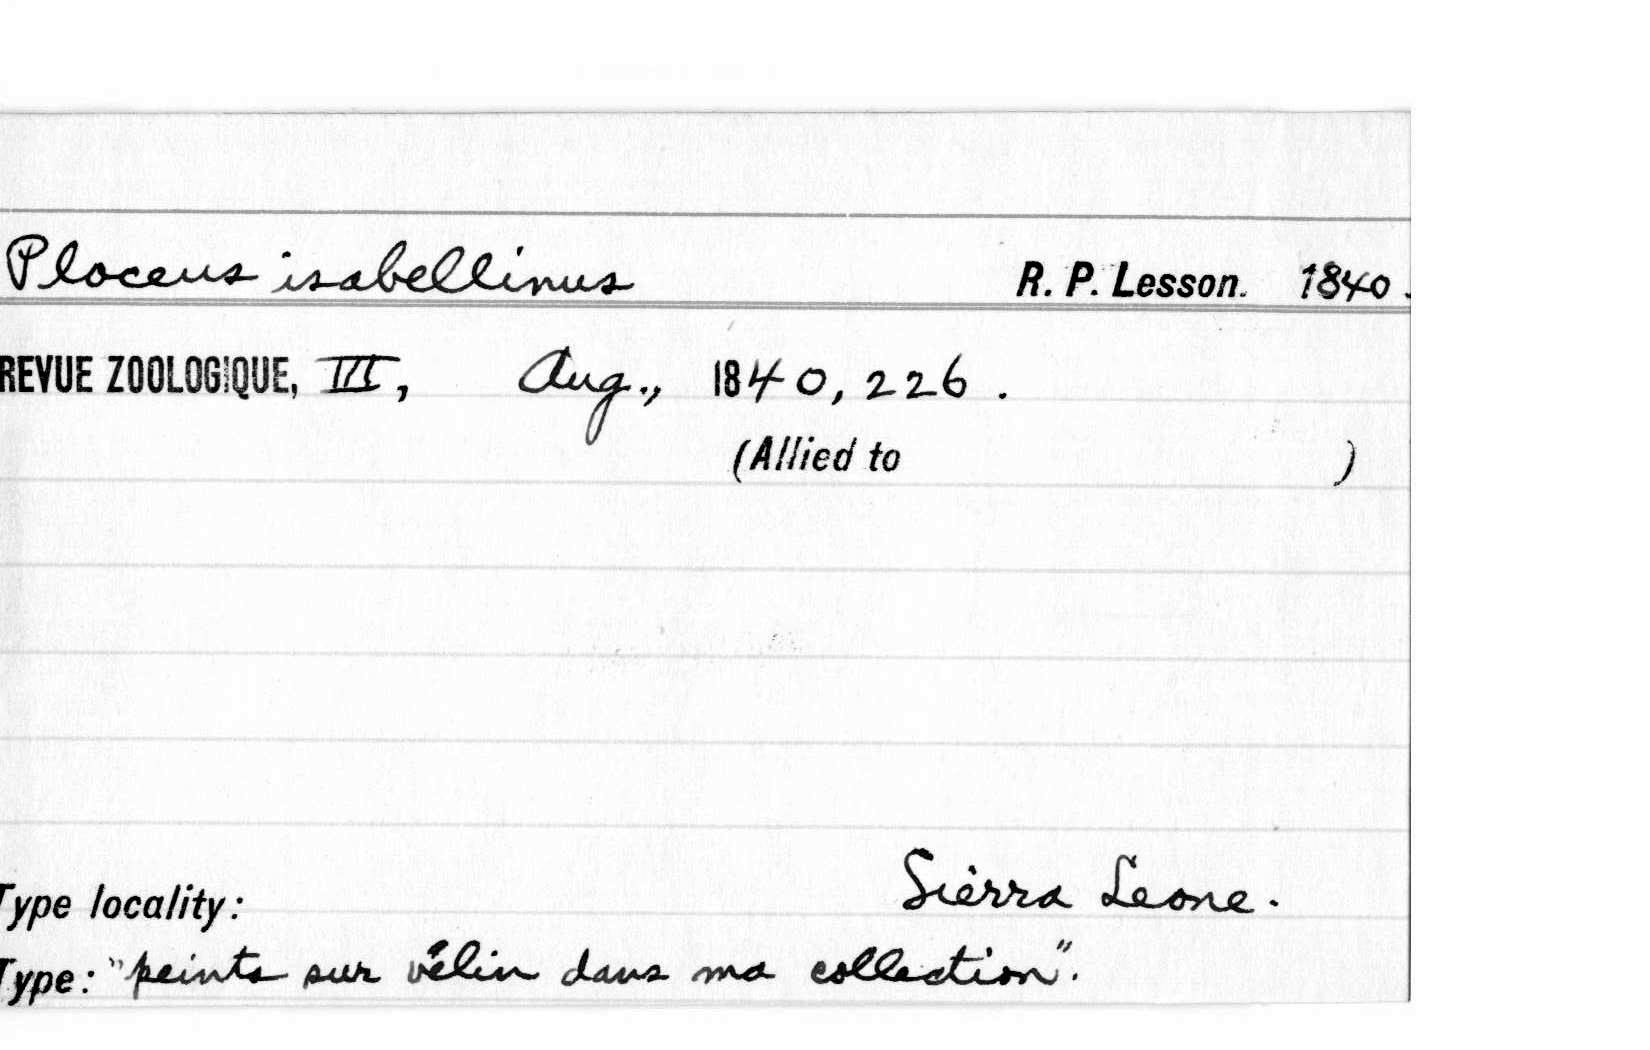 Ploceus isabellinus R. P. Lesson. 1840.
REVUE ZOOLOGIQUE, III, Aug., 1840, 226.
(Allied to )
Type locality: Sierra Leone.
Type: "peints sur vélin dans ma collection".